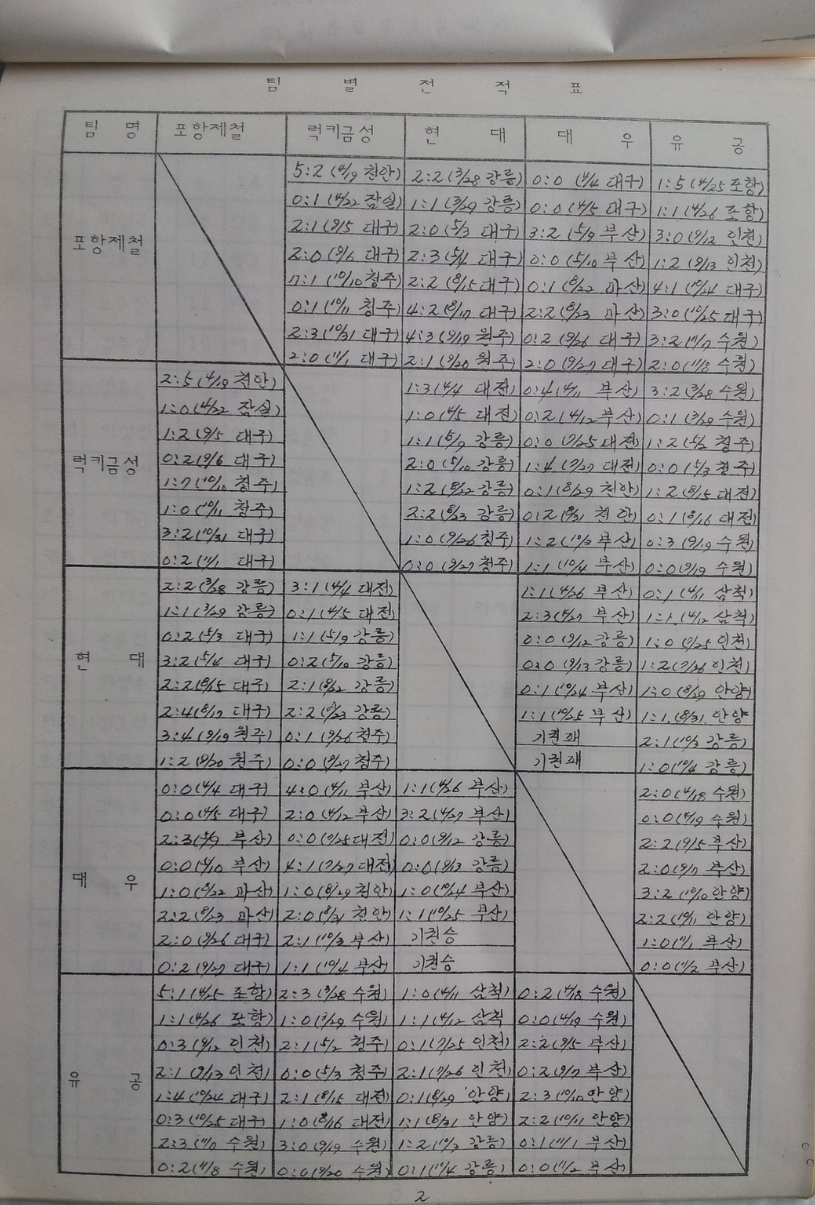 팀 별 전 적 표
팀 명 포항제철 럭키금성 현 대 대 우 유 공
5:2 (4/19 천안) 2:2 (3/28 강릉) 0:0 (4/4 대구) 1:5 (4/25 포항)
0:1 (4/22 잠실) 1:1 (3/29 강릉) 0:0 (4/5 대구) 1:1 (4/26 포항)
포항제철 2:1 (9/5 대구) 2:0 (5/3 대구) 3:2 (5/9 부산) 3:0 (9/12 인천)
2:0 (9/6 대구) 2:3 (5/4 대구) 0:0 (5/10 부산) 1:2 (9/13 인천)
7:1 (10/10 청주) 2:2 (8/15 대구) 0:1 (8/22 마산) 4:1 (10/24 대구)
0:1 (10/11 청주) 4:2 (8/17 대구) 2:2 (8/23 마산) 3:0 (10/25 대구)
2:3 (10/31 대구) 4:3 (9/19 원주) 0:2 (9/26 대구) 3:2 (11/7 수원)
2:0 (11/1 대구) 2:1 (9/20 원주) 2:0 (9/27 대구) 2:0 (11/8 수원)
2:5 (4/19 천안) 1:3 (4/4 대전) 0:4 (4/11 부산) 3:2 (3/28 수원)
1:0 (4/22 잠실) 1:0 (4/5 대전) 0:2 (4/12 부산) 0:1 (3/29 수원)
1:2 (9/5 대구) 1:1 (5/9 강릉) 0:0 (7/25 대전) 1:2 (5/2 청주)
럭키금성 0:2 (9/6 대구) 2:0 (5/10 강릉) 1:4 (7/27 대전) 0:0 (5/3 청주)
1:7 (10/10 청주) 1:2 (8/22 강릉) 0:1 (8/29 천안) 1:2 (8/15 대전)
1:0 (10/11 청주) 2:2 (8/23 강릉) 0:2 (8/31 천안) 0:1 (8/16 대전)
3:2 (10/31 대구) 1:0 (9/26 청주) 1:2 (10/3 부산) 0:3 (9/19 수원)
0:2 (11/1 대구) 0:0 (9/27 청주) 1:1 (10/4 부산) 0:0 (9/19 수원)
2:2 (3/28 강릉) 3:1 (4/4 대전) 1:1 (4/26 부산) 0:1 (4/11 삼척)
1:1 (3/29 강릉) 0:1 (4/5 대전) 2:3 (4/27 부산) 1:1 (4/12 삼척)
0:2 (5/3 대구) 1:1 (5/9 강릉) 0:0 (9/12 강릉) 1:0 (7/25 인천)
현 대 3:2 (5/4 대구) 0:2 (5/10 강릉) 0:0 (9/13 강릉) 1:2 (7/26 인천)
2:2 (8/15 대구) 2:1 (8/22 강릉) 0:1 (10/24 부산) 1:0 (8/29 안양)
2:4 (8/17 대구) 2:2 (8/23 강릉) 1:1 (10/25 부산) 1:1 (8/31 안양
3:4 (9/19 원주) 0:1 (9/26 청주) 기권패 2:1 (10/3 강릉)
1:2 (9/20 원주) 0:0 (9/27 청주) 기권패 1:0 (10/4 강릉)
0:0 (4/4 대구) 4:0 (4/11 부산) 1:1 (4/26 부산) 2:0 (4/18 수원)
0:0 (4/5 대구) 2:0 (4/12 부산) 3:2 (4/27 부산) 0:0 (4/19 수원)
2:3 (5/9 부산) 0:0 (7/25 대전) 0:0 (9/12 강릉) 2:2 (9/5 부산)
0:0 (5/10 부산) 4:1 (7/27 대전) 0:0 (9/13 강릉) 2:0 (9/7 부산)
대 우 1:0 (8/22 마산) 1:0 (8/29 천안) 1:0 (10/24 부산) 3:2 (10/10 안양)
2:2 (8/23 마산) 2:0 (8/31 천안) 1:1 (10/25 부산) 2:2 (10/11 안양)
2:0 (9/26 대구) 2:1 (10/3 부산) 기권승 1:0 (11/1 부산)
0:2 (9/27 대구) 1:1 (10/4 부산) 기권승 0:0 (11/2 부산)
5:1 (4/25 포항) 2:3 (3/28 수원) 1:0 (4/11 삼척) 0:2 (4/18 수원)
1:1 (4/26 포항) 1:0 (3/29 수원) 1:1 (4/12 삼척 0:0 (4/19 수원)
0:3 (9/12 인천) 2:1 (5/2 청주) 0:1 (7/25 인천) 2:2 (9/5 부산)
유 공 2:1 (9/13 인천) 0:0 (5/3 청주) 2:1 (7/26 인천) 0:2 (9/7 부산)
1:4 (10/24 대구) 2:1 (8/15 대전) 0:1 (8/29 안양) 2:3 (10/10 안양)
0:3 (10/25 대구) 1:0 (8/16 대전) 1:1 (8/31 안양) 2:2 (10/11 안양)
2:3 (11/7 수원) 3:0 (9/19 수원) 1:2 (10/3 강릉) 0:1 (11/1 부산)
0:2 (11/8 수원) 0:0 (9/20 수원) 0:1 (10/4 강릉) 0:0 (11/2 부산)
2